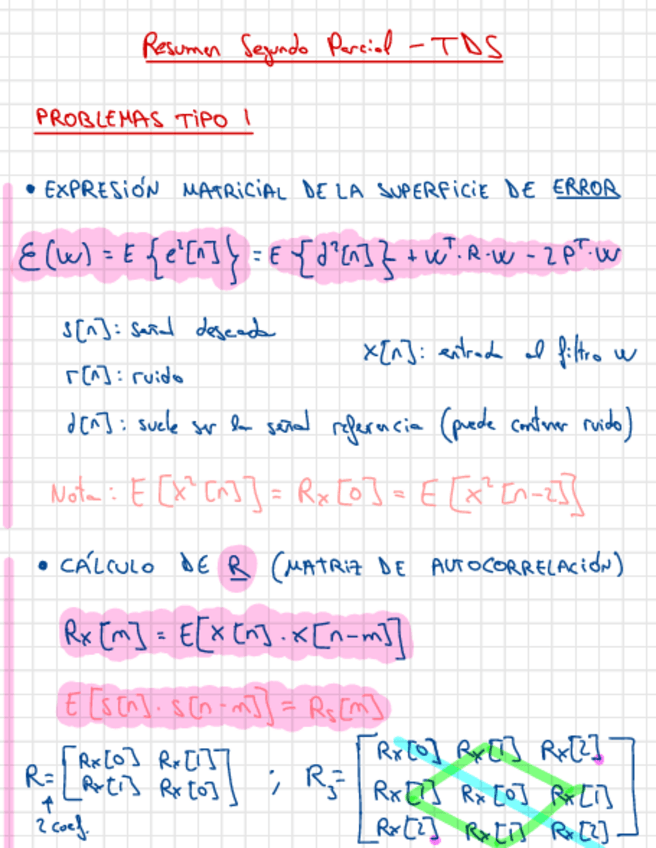 Resumen Segundo Parcial - TDS
PROBLEMAS TIPO 1
• EXPRESIÓN MATRICIAL DE LA SUPERFICIE DE ERROR
ℰ(w) = E {e²[n]} = E {d²[n]} + wᵀ·R·w - 2Pᵀ·w
s[n]: señal deseada
x[n]: entrada al filtro w
r[n]: ruido
d[n]: suele ser la señal referencia (puede contener ruido)
Nota: E[x²[n]] = Rx[0] = E[x²[n-2]]
• CÁLCULO DE R (MATRIZ DE AUTOCORRELACIÓN)
Rx[m] = E[x[n].x[n-m]]
E[s[n].s[n-m]] = Rs[m]
R = [Rx[0] Rx[1] ; R₃ = [Rx[0] Rx[1] Rx[2]
Rx[1] Rx[0]] Rx[1] Rx[0] Rx[1]
↑
2 coef. Rx[2] Rx[1] Rx[2]]